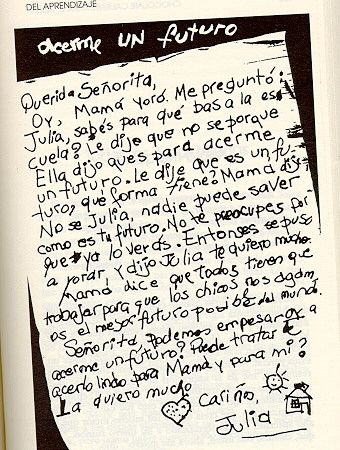 DEL APRENDIZAJE
acerme un futuro
Querida Señorita,
Oy, Mamá yoró. Me preguntó:
Julia, sabés para qué bas a la es
cuela? Le dije que no se porque
Ella dijo ques para acerme
un futuro. Le dije que es un fu-
turo, que forma tiene? Mamá dijo
No se Julia, nadie puede saver
como es tu futuro. No te preocupes por
que ya lo verás. Entonses se puso
a yorar, y dijo Julia te quiero mucho.
Mamá dice que todos tienen que
trabajar para que los chicos nos agam
os el mejor futuro posible del mundo.
Señorita, podemos empesar oy a
acerme un futuro? Puede tratar de
acerlo lindo para Mamá y para mi?
La quiero mucho
Cariños,
Julia